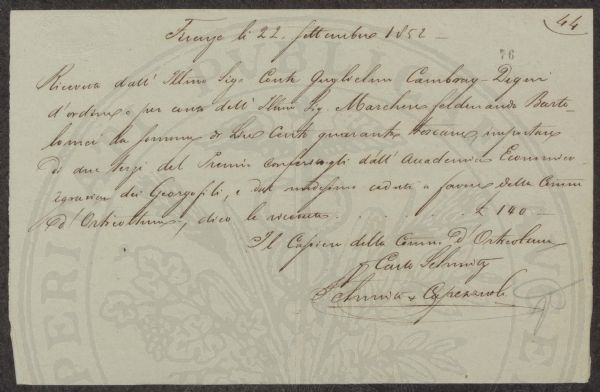 44
Firenze li 22. Settembre 1852 –
76
Ricevuto dall' Illmo Sigr Conte Guglielmo Cambray-Digny
d'ordine e per conto dell' Illmo Sig. Marchese Ferdinando Barto-
lomei la somma di Lire Cento quaranta toscane importare
di due terzi del Premio conferitogli dall' Accademia Economico
Agraria dei Georgofili, e dal medesimo ceduti a favore della Comm
d' Orticoltura, dico lire ricevute . . . . . . £ 140 –
Il Cassiere della Comm: d' Orticoltura
p Carlo Schmitz